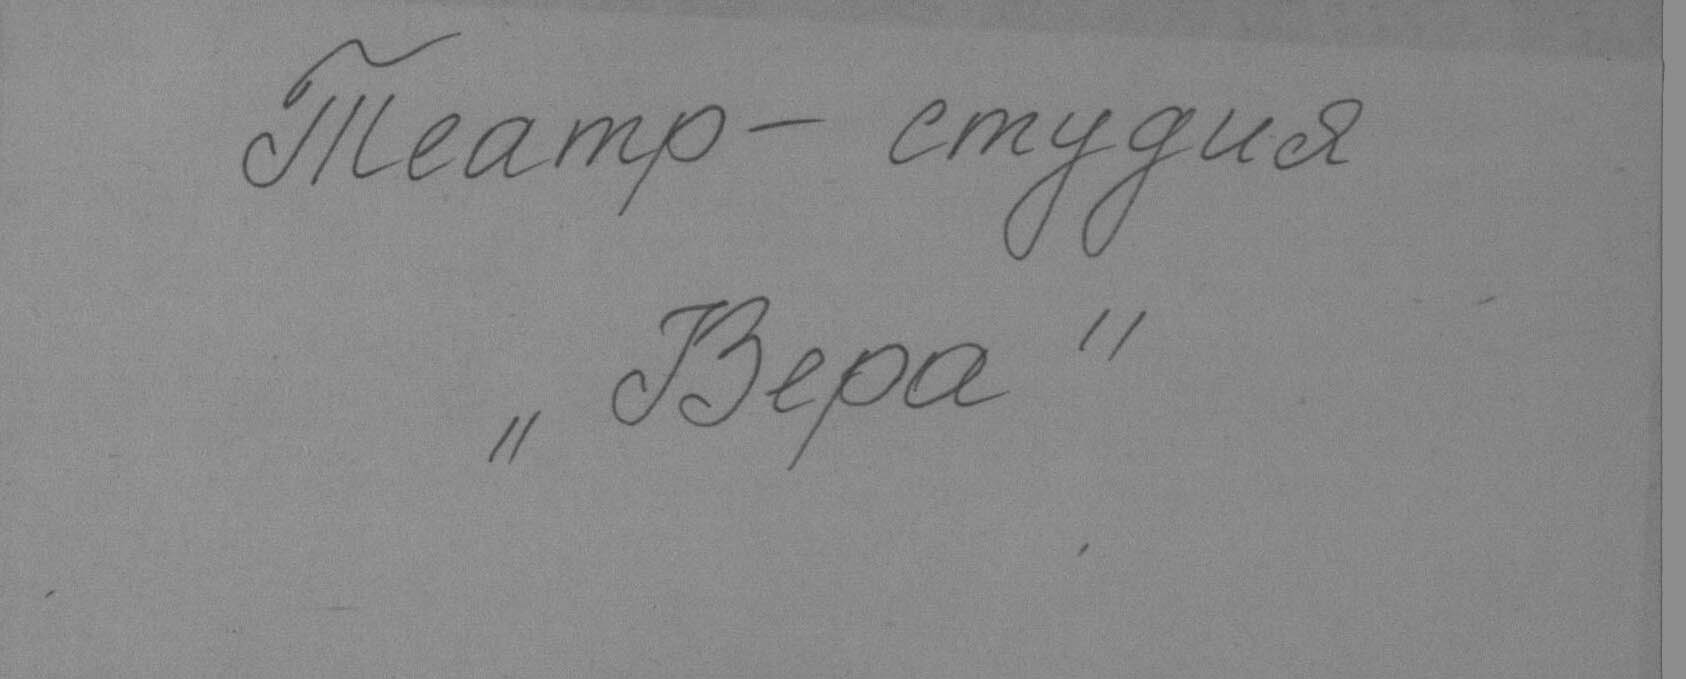 Театр- студия
„Вера"